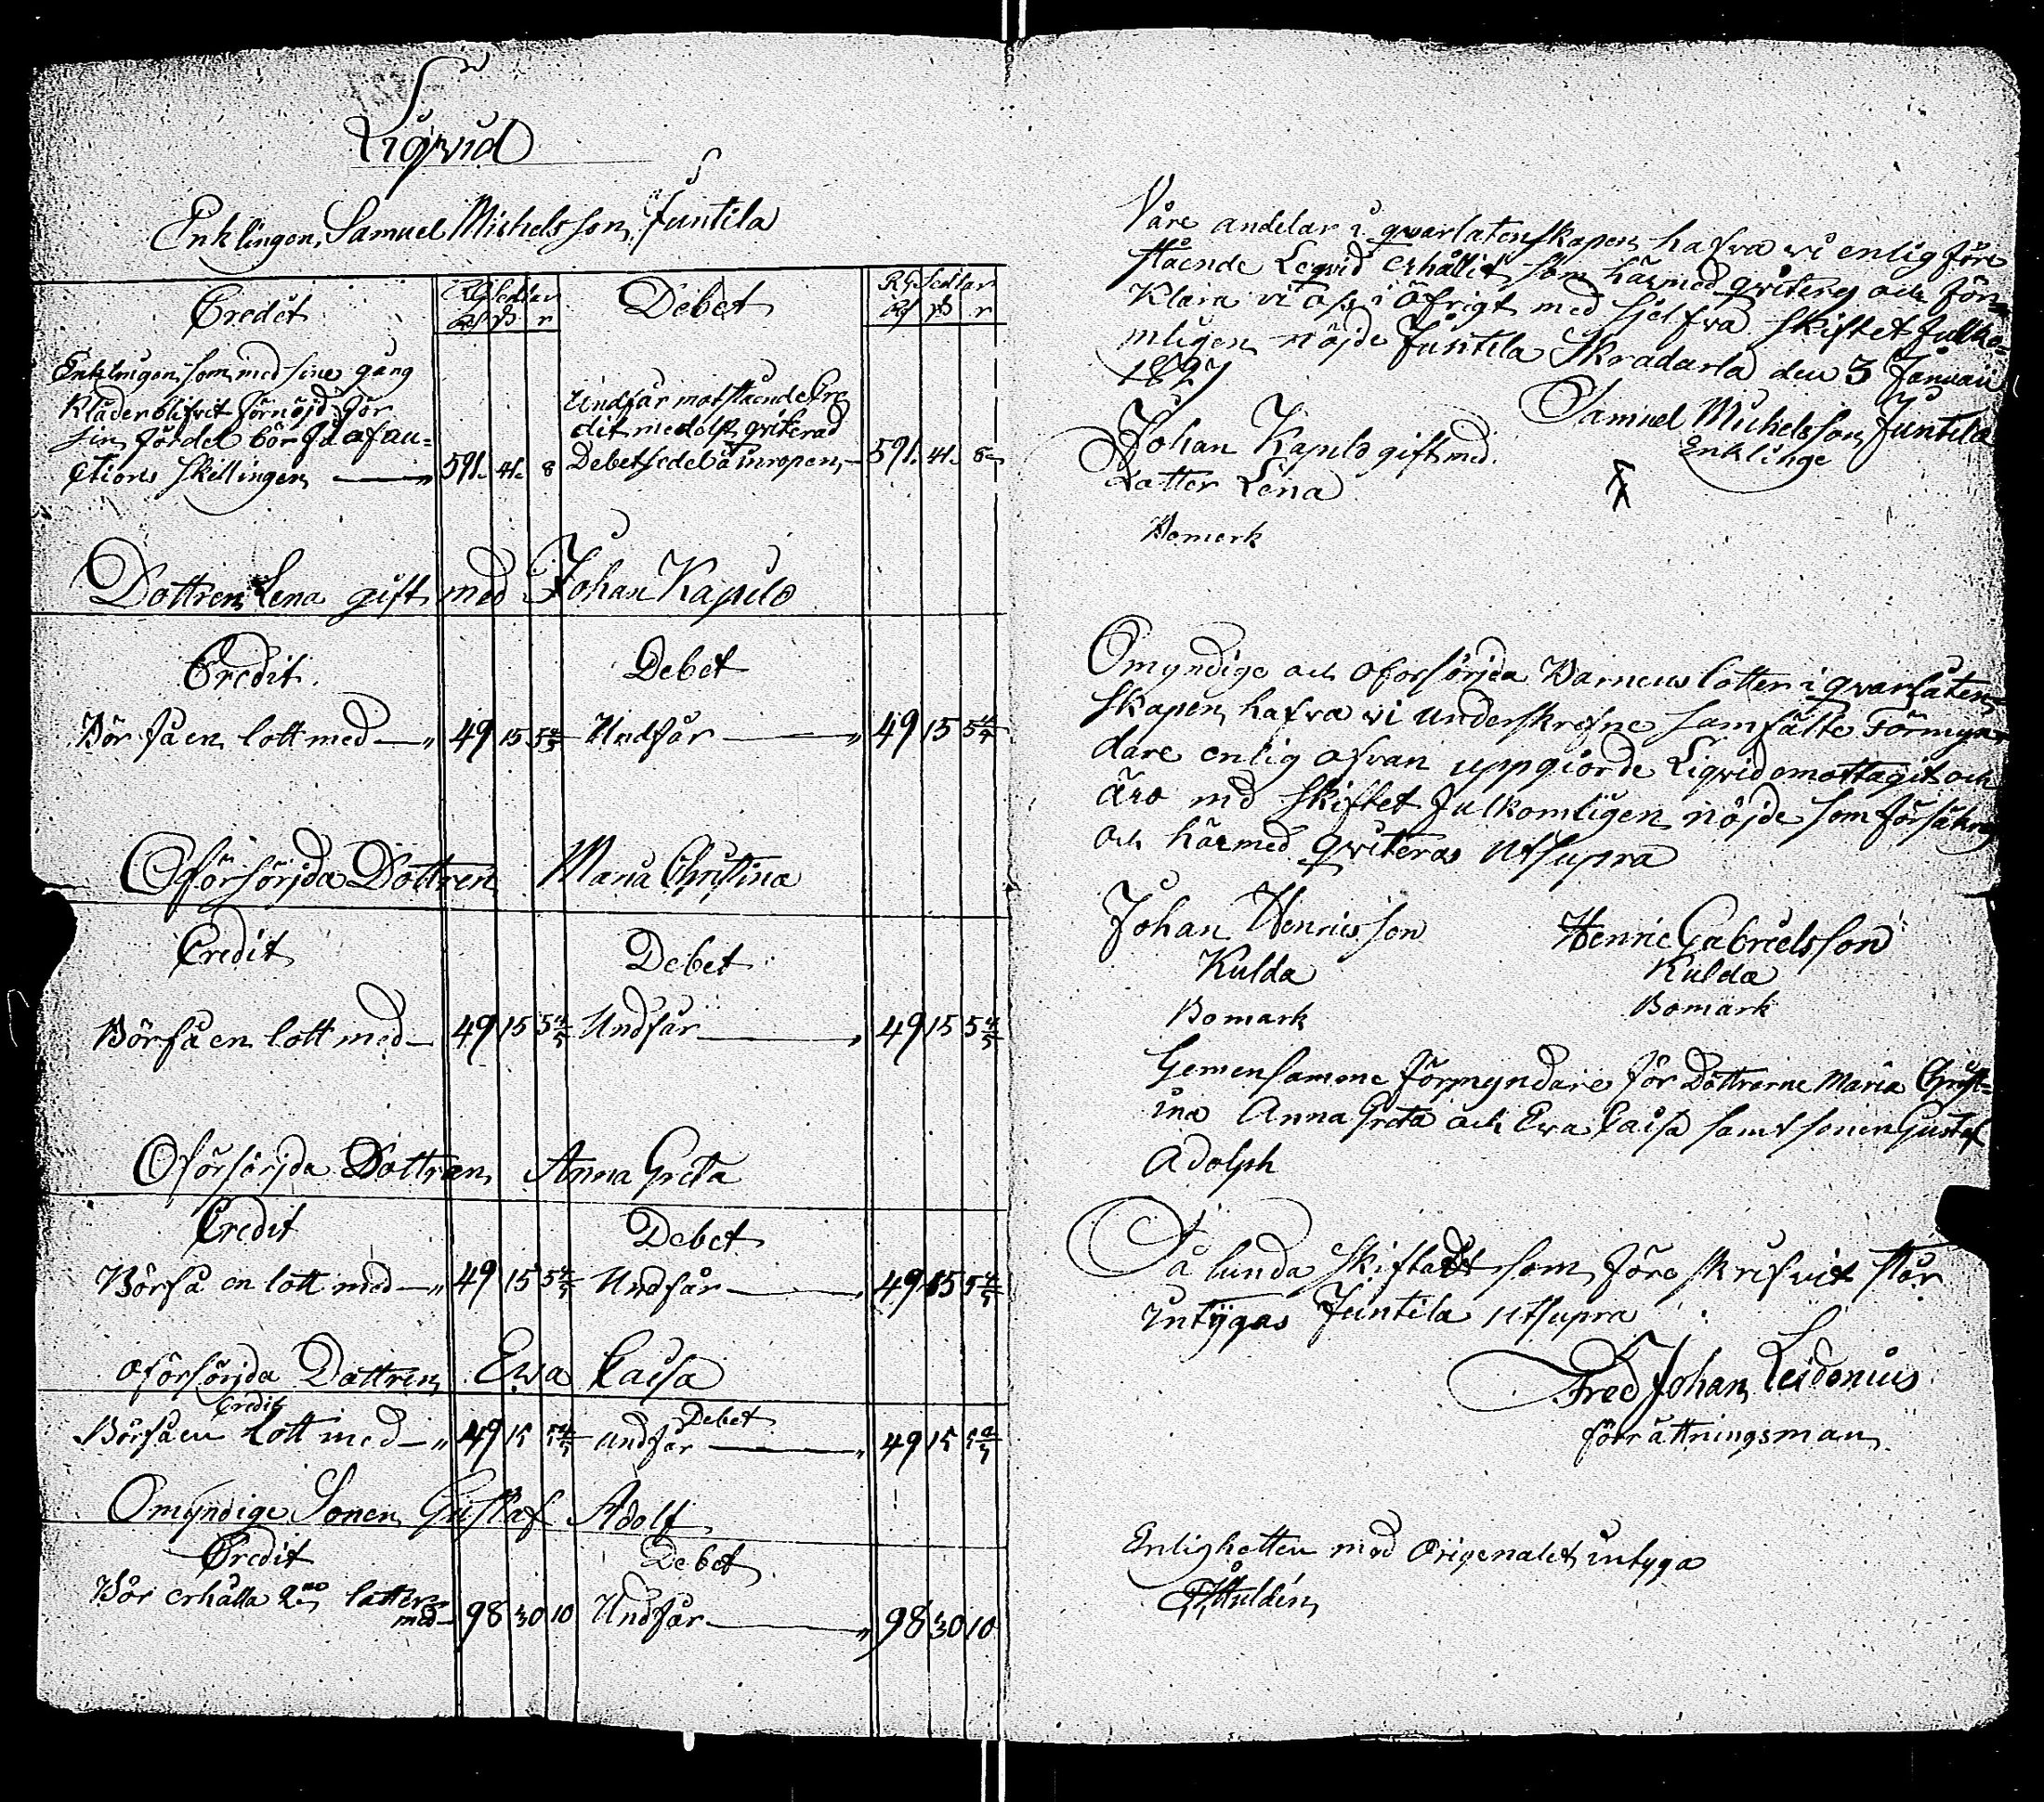 Liqvid
Enklingen Samuel Michelsson Juntila
Credet RGSedlar Debet RGSedlar
Rd ß r Rd ß r
Enklingen som med sine gång
kläder blifvit förnöjd, för
sin fördel bör få af au=
ctions skillingen — 591. 41. 8
Undfår motstående Cre
dit medelst qviterad
Debetsedel å inropen, — 591. 41. 8
Dottren Lena gift med Johan Kapulo
Credit Debet
Bör få en lott med — 49 15 5 4/5 Undfår — 49 15 5 4/5
Oförsörjda Dottren Maria Christina
Credit Debet
Bör få en lott med — 49 15 5 4/5 Undfår — 49 15 5 4/5
Oförsörjda Dottran Anna Greta
Credit Debet
Bör få en lott med — 49 15 5 4/5 Undfår — 49 15 5 4/5
oförsörjda Dottren Ewa Caisa
Credit Debet
Bör få en Lott med — 49 15 5 4/5 Undfår — 49 15 5 4/5
Omyndige Sonen Gustaf Adolf
Credit Debet
Bör erhålla 2ne lotter
med — 98 30 10 Undfår — 98 30 10
Våre andelar i qvarlatenskapen hafva vi enlig före
stående Leqvid erhållit som härmed qviteras och för=
klara vi oss i öfrigt med sjelfva skiftet fullko=
mligen nöjde Juntila Skradarla den 3 Januarii
1827
Samuel Michelsson Juntila
Enklinge
Johan Kapulo gift med
Datter Lena
Bomerk
Omyndige och oforsörjda Barnens lotter i qvarlaten
skapen hafva vi underskrefne samfälte Förmyn=
dare enlig ofvan uppgiorde Liqvid emottagit och
äro md skiftet fulkomligen nöjde som försäkras
och härmed qviteras Utsupra
Johan Henricsson Henric Gabrielsson
Kulda Kulda
Bomark Bomark
Gemensamme förmyndare för Döttrarne Maria Christ=
ina Anna Greta och Ewa Caisa samt sonen Gustaf
Adolph
Så lunda skiftadt som före skrifvit står
intygas Juntila utsupra
Fred Johan Leidenius
förrättningsman
Enligheten med Origenalet intyga
Huldén